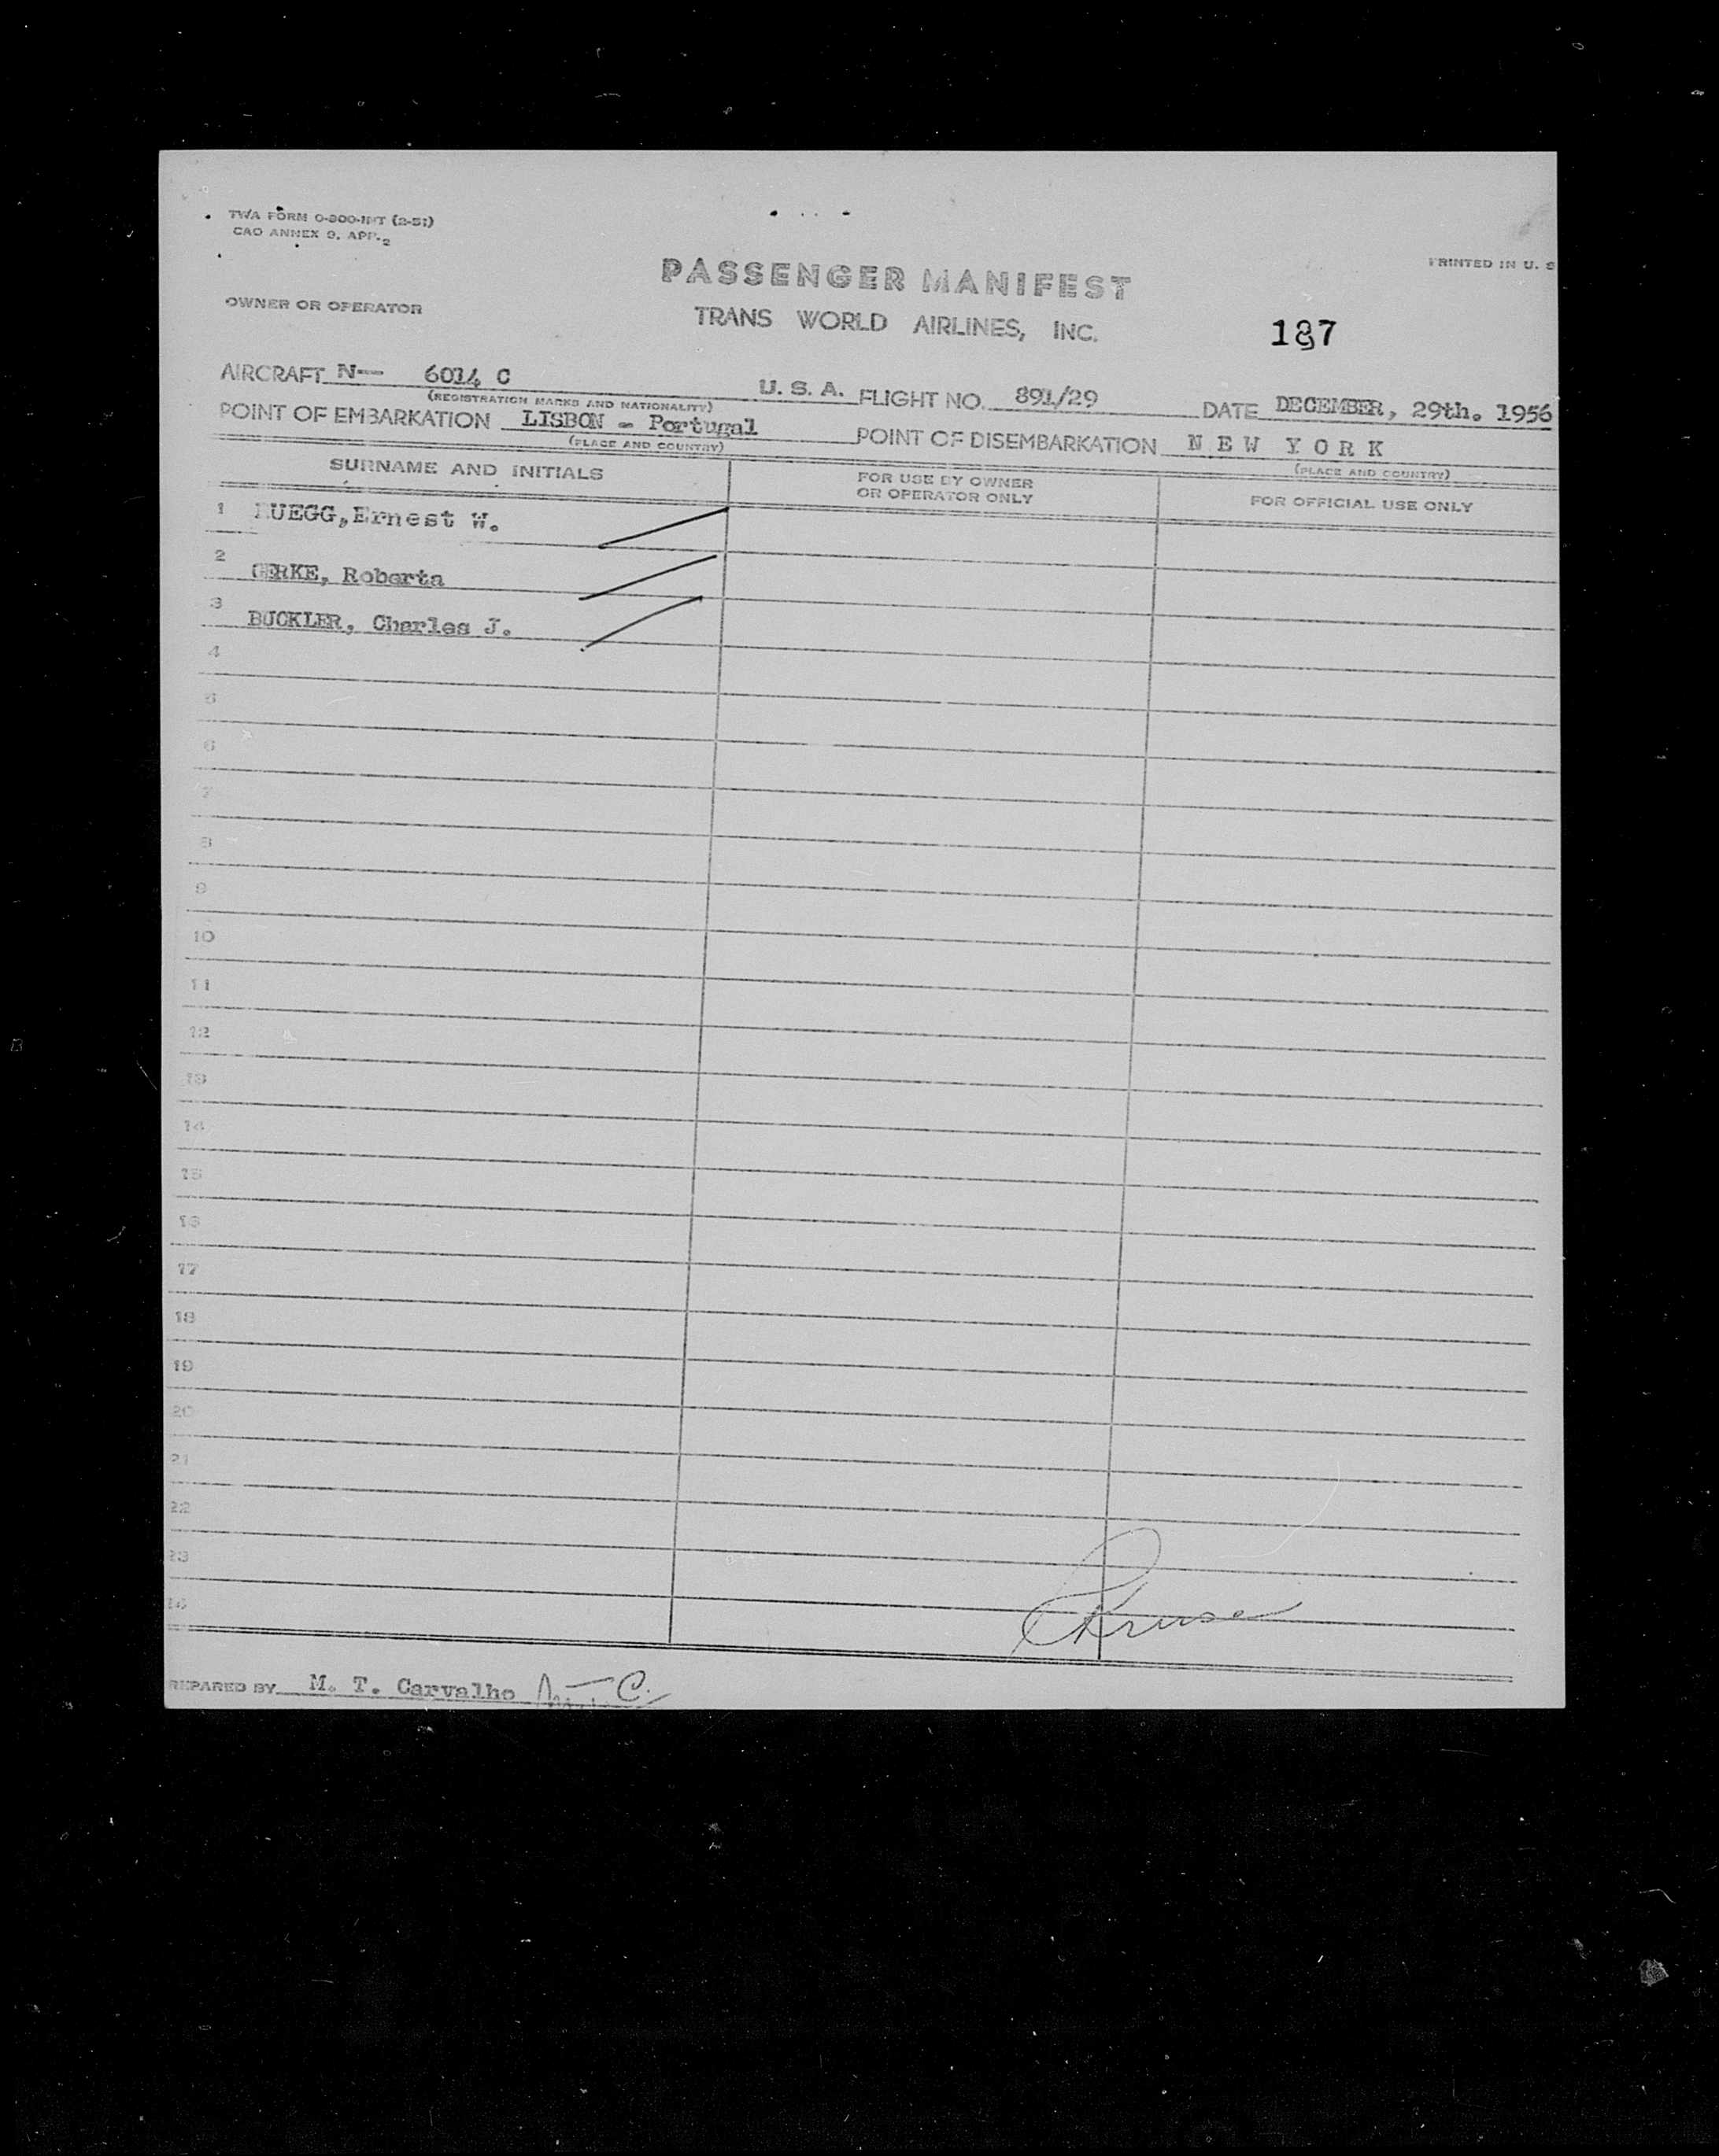 TWA FORM O-300-INT (2-51)
CAO ANNEX 9, APP. 2
PRINTED IN U. S
PASSENGER MANIFEST
OWNER OR OPERATOR
TRANS WORLD AIRLINES, INC.
187
AIRCRAFT N-- 6014 C U. S. A. FLIGHT NO. 891/29 DATE DECEMBER, 29th. 1956
(REGISTRATION MARKS AND NATIONALITY)
POINT OF EMBARKATION LISBON - Portugal POINT OF DISEMBARKATION N E W Y O R K
(PLACE AND COUNTRY) (PLACE AND COUNTRY)
SURNAME AND INITIALS FOR USE BY OWNER OR OPERATOR ONLY FOR OFFICIAL USE ONLY
1 Ernest W.
2 GERKE, Roberta
3 BUCKLER, Charles J.
4
5
6
7
8
9
10
11
12
13
14
15
16
17
18
19
20
21
22
23
Kruse
REPARED BY M. T. Carvalho